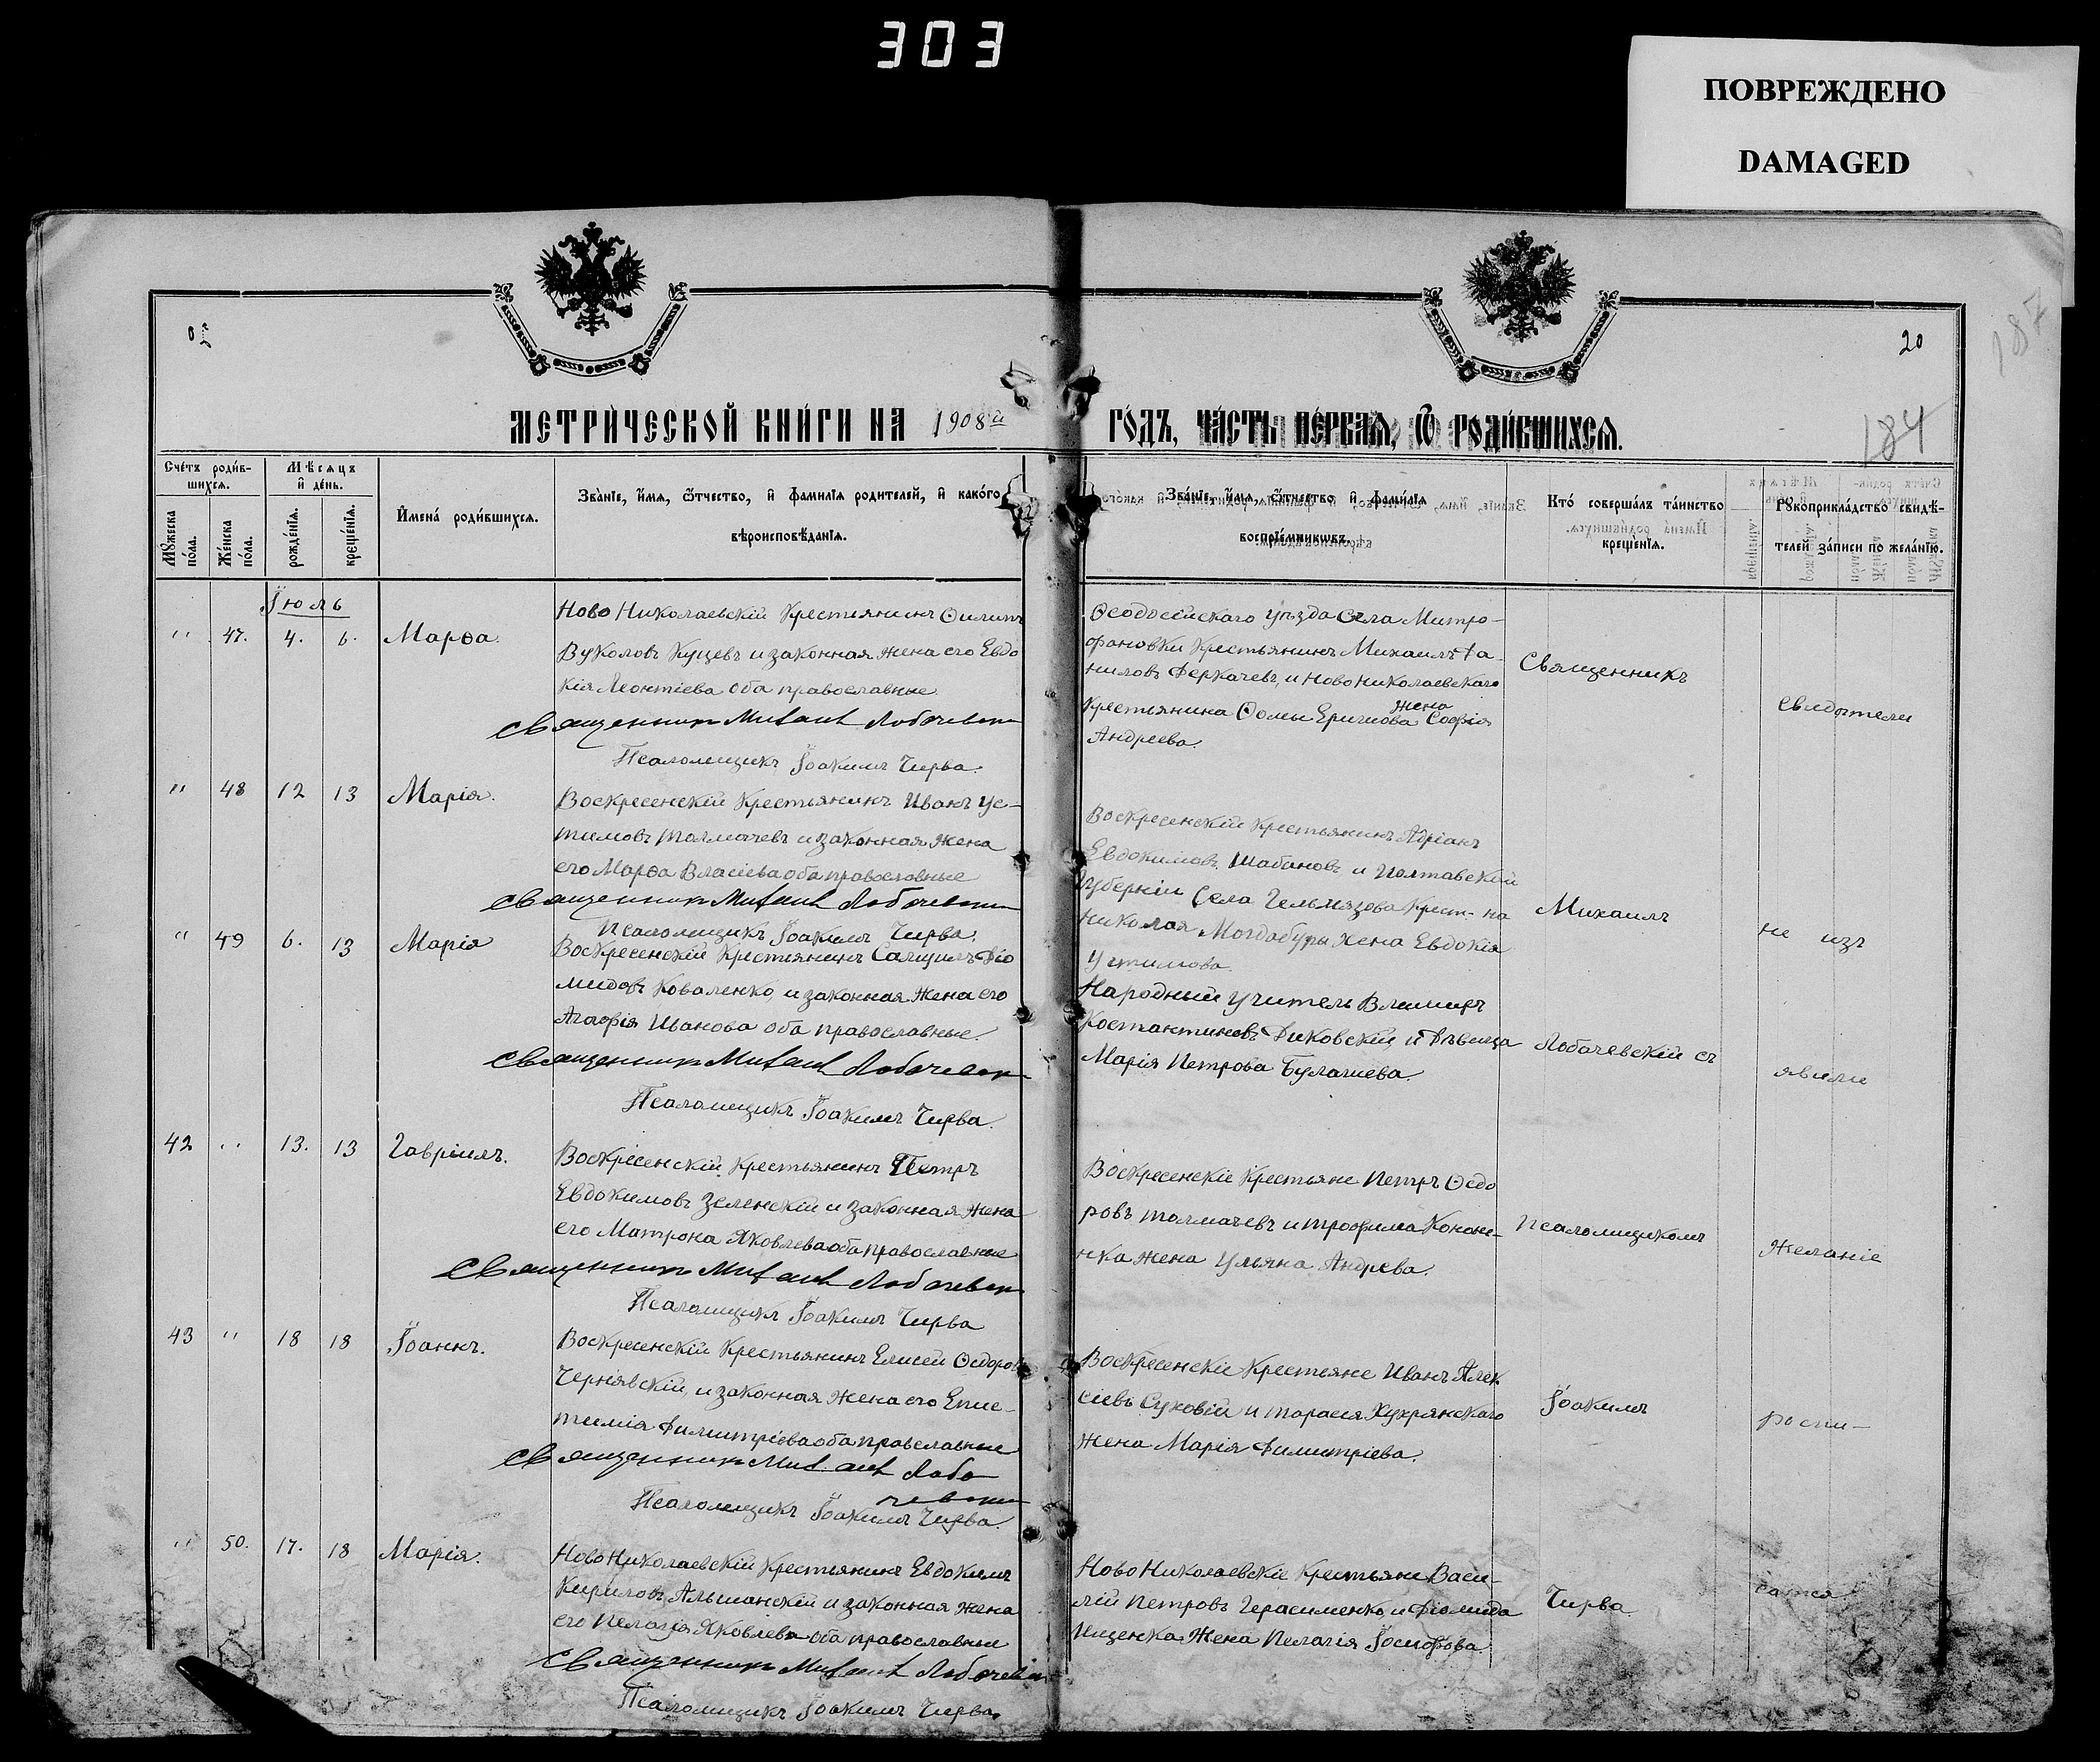 303
ПОВРЕЖДЕНО
DAMAGED
187
20
184
МЕТРИ́ЧЕСКОЙ КНИ́ГИ НА 1908й
ГО́ДЪ, ЧА́СТЬ ПЕ́РВАЯ, Ѿ РОДИ́ВШИХСЯ.
Сче́тъ роди́в-
шихся.
Мѣ́сяцъ
и҆ де́нь.
Мꙋ́жеска
по́ла.
Же́нска
по́ла.
рожде́нїѧ.
креще́нїѧ.
И҆мена̀ роди́вшихсѧ.
Зва́нїе, и҆́мѧ, ѻ҆́тчество, и҆ фамилїѧ родителей, и҆ како́го
вѣроисповѣ́данїѧ.
Зва́нїе, и҆́мѧ, ѻ҆́тчество и҆ фами́лїѧ
воспрїе́мникѡвъ.
Кто́ соверша́лъ та́инство
креще́нїѧ.
Рꙋкоприкла́дство свидѣ́-
телей за́писи по жела́нїю.
Іюль
" 47. 4. 6. Марѳа.
Ново Николаевскій Крестьянинъ Филипъ
Вуколовъ Куцевъ и законная жена его Евдо
кія Леонтіева оба православные
Священникъ Михаилъ Лобачевск
Псаломщикъ Іоакимъ Чирва.
Ѳеодосійскаго уѣзда Села Митро-
фановки Крестьянинъ Михаилъ Да-
ниловъ Деркачевъ, и Ново Николаевскаго
Крестьянина Ѳомы жена Софія
Андреева.
Священникъ
Свидѣтели
" 48 12 13 Марія.
Воскресенскій Крестьянинъ Иванъ Ус-
тимовъ Толмачевъ и законная жена
его Марѳа Власіева оба православные
Священникъ Михаилъ Лобачевск
Псаломщикъ Іоакимъ Чирва.
Воскресенскій Крестьянинъ Адріанъ
Евдокимовъ Шабановъ и Полтавской
Губерніи Села Гельмязова Крест-на
Николая жена Евдокія
Устимова.
Михаилъ
не изъ
" 49 6. 13 Марія
Воскресенскій Крестьянинъ Самуилъ Діо
мидовъ Коваленко и законная жена его
Агафія Иванова оба православные.
Священникъ Михаилъ Лобачевск
Псаломщикъ Іоакимъ Чирва.
Народный учитель
Костантиновъ Диковскій и дѣвица
Марія Петрова Булашева.
Лобачевскій съ
явили
42 " 13. 13 Гавріилъ.
Воскресенскій Крестьянинъ Петръ
Евдокимовъ Зеленскій и законная жена
его Матрона Яковлева оба православные
Священникъ Михаилъ Лобачевск
Псаломщикъ Іоакимъ Чирва
Воскресенскіе Крестьяне Петръ Ѳедо
ровъ Толмачевъ и Трофима Конон-
нка жена Ульяна Андрева.
Псаломщикомъ
желаніе
43 " 18 18 Іоаннъ.
Воскресенскій Крестьянинъ Елисей Ѳедоров
Чернявскій, и законная жена его Епис-
тимія Димитріева оба православные
Священникъ Михаилъ Лобо
чевск
Псаломщикъ Іоакимъ Чирва.
Воскресенскіе Крестьяне Иванъ Алек
сіевъ Суховій и Тарасія Кухрянскаго
жена Марія Димитріева.
Іоакимъ
роспи-
" 50. 17. 18 Марія.
Ново Николаевскій Крестьянинъ Евдокимъ
Кириловъ Альшанскій и законная жена
его Пелагія Яковлева оба православные
Священникъ Михаилъ Лобачевск
Псаломщикъ Іоакимъ Чирва.
Ново Николаевскіе Крестьяне Васи-
лій Петровъ Герасименко, и Діомида
Ищенка жена Пелагія Іосифова.
Чирва
сатся